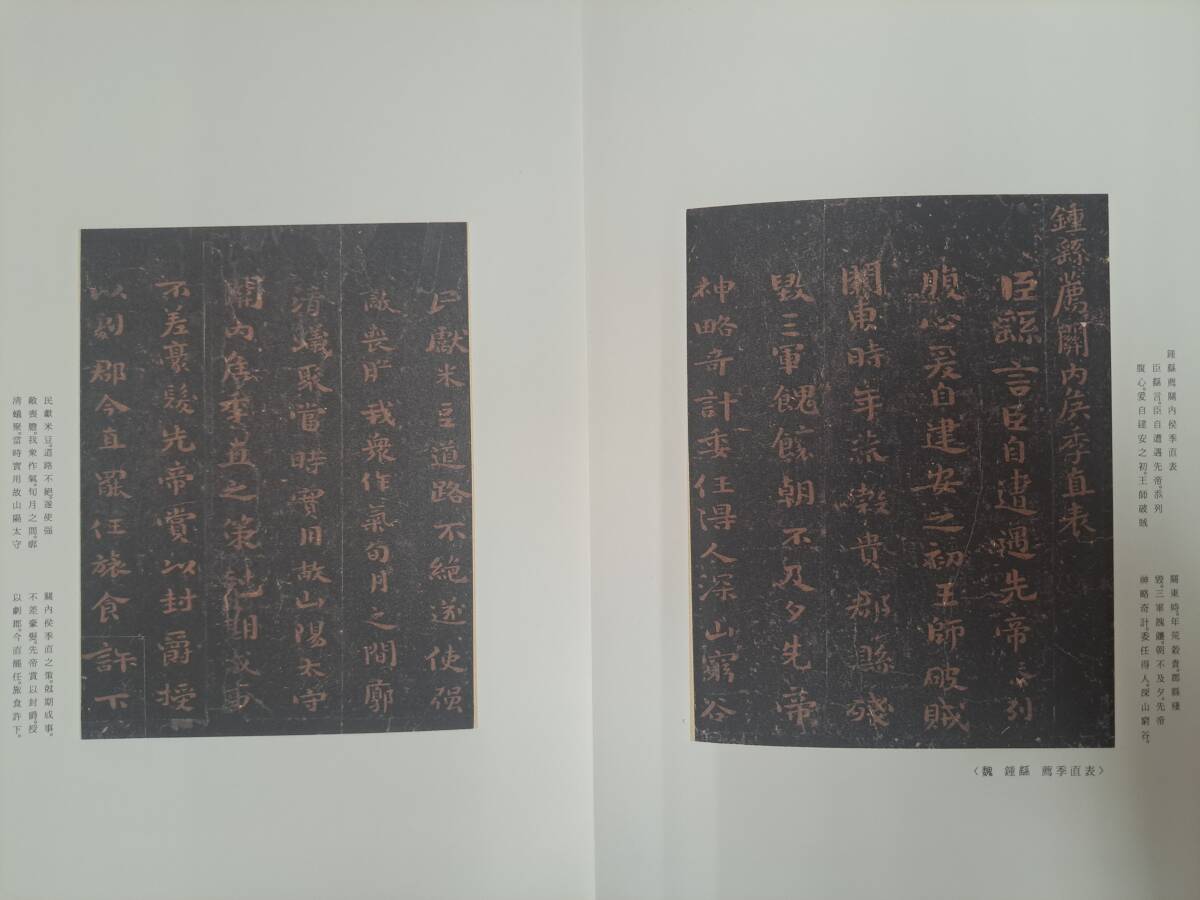 鍾繇薦關内侯季直表
臣繇言臣自遭遇先帝忝列
腹心爰自建安之初王師破賊
關東時年荒榖貴郡縣殘
毀三軍餽饟朝不及夕先帝
神略奇計委任得人深山窮谷
鍾繇薦關内侯季直表
臣繇言。臣自遭遇先帝。忝列
腹心。爰自建安之初。王師破賊
關東時。年荒穀貴。郡縣殘
毀。三軍餽饟。朝不及夕。先帝
神略奇計。委任得人。深山窮谷。
〈魏 鍾繇 薦季直表〉
民獻米豆道路不絕遂使强
敵喪膽我衆作氣旬月之間廓
清蟻聚當時實用故山陽太守
關内侯季直之策尅期成事
不差豪髮先帝賞以封爵授
以劇郡今直罷任旅食許下
民獻米豆。道路不絕。遂使强
敵喪膽。我衆作氣。旬月之間。廓
清蟻聚。當時實用故山陽太守
關内侯季直之策。尅期成事。
不差豪髮。先帝賞以封爵。授
以劇郡。今直罷任。旅食許下。